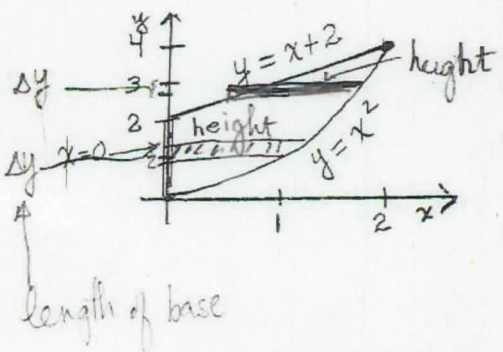 y
4
y = x+2
height
Δy
3
2
height
x=0
y = x²
Δy
1
2
x
length of base